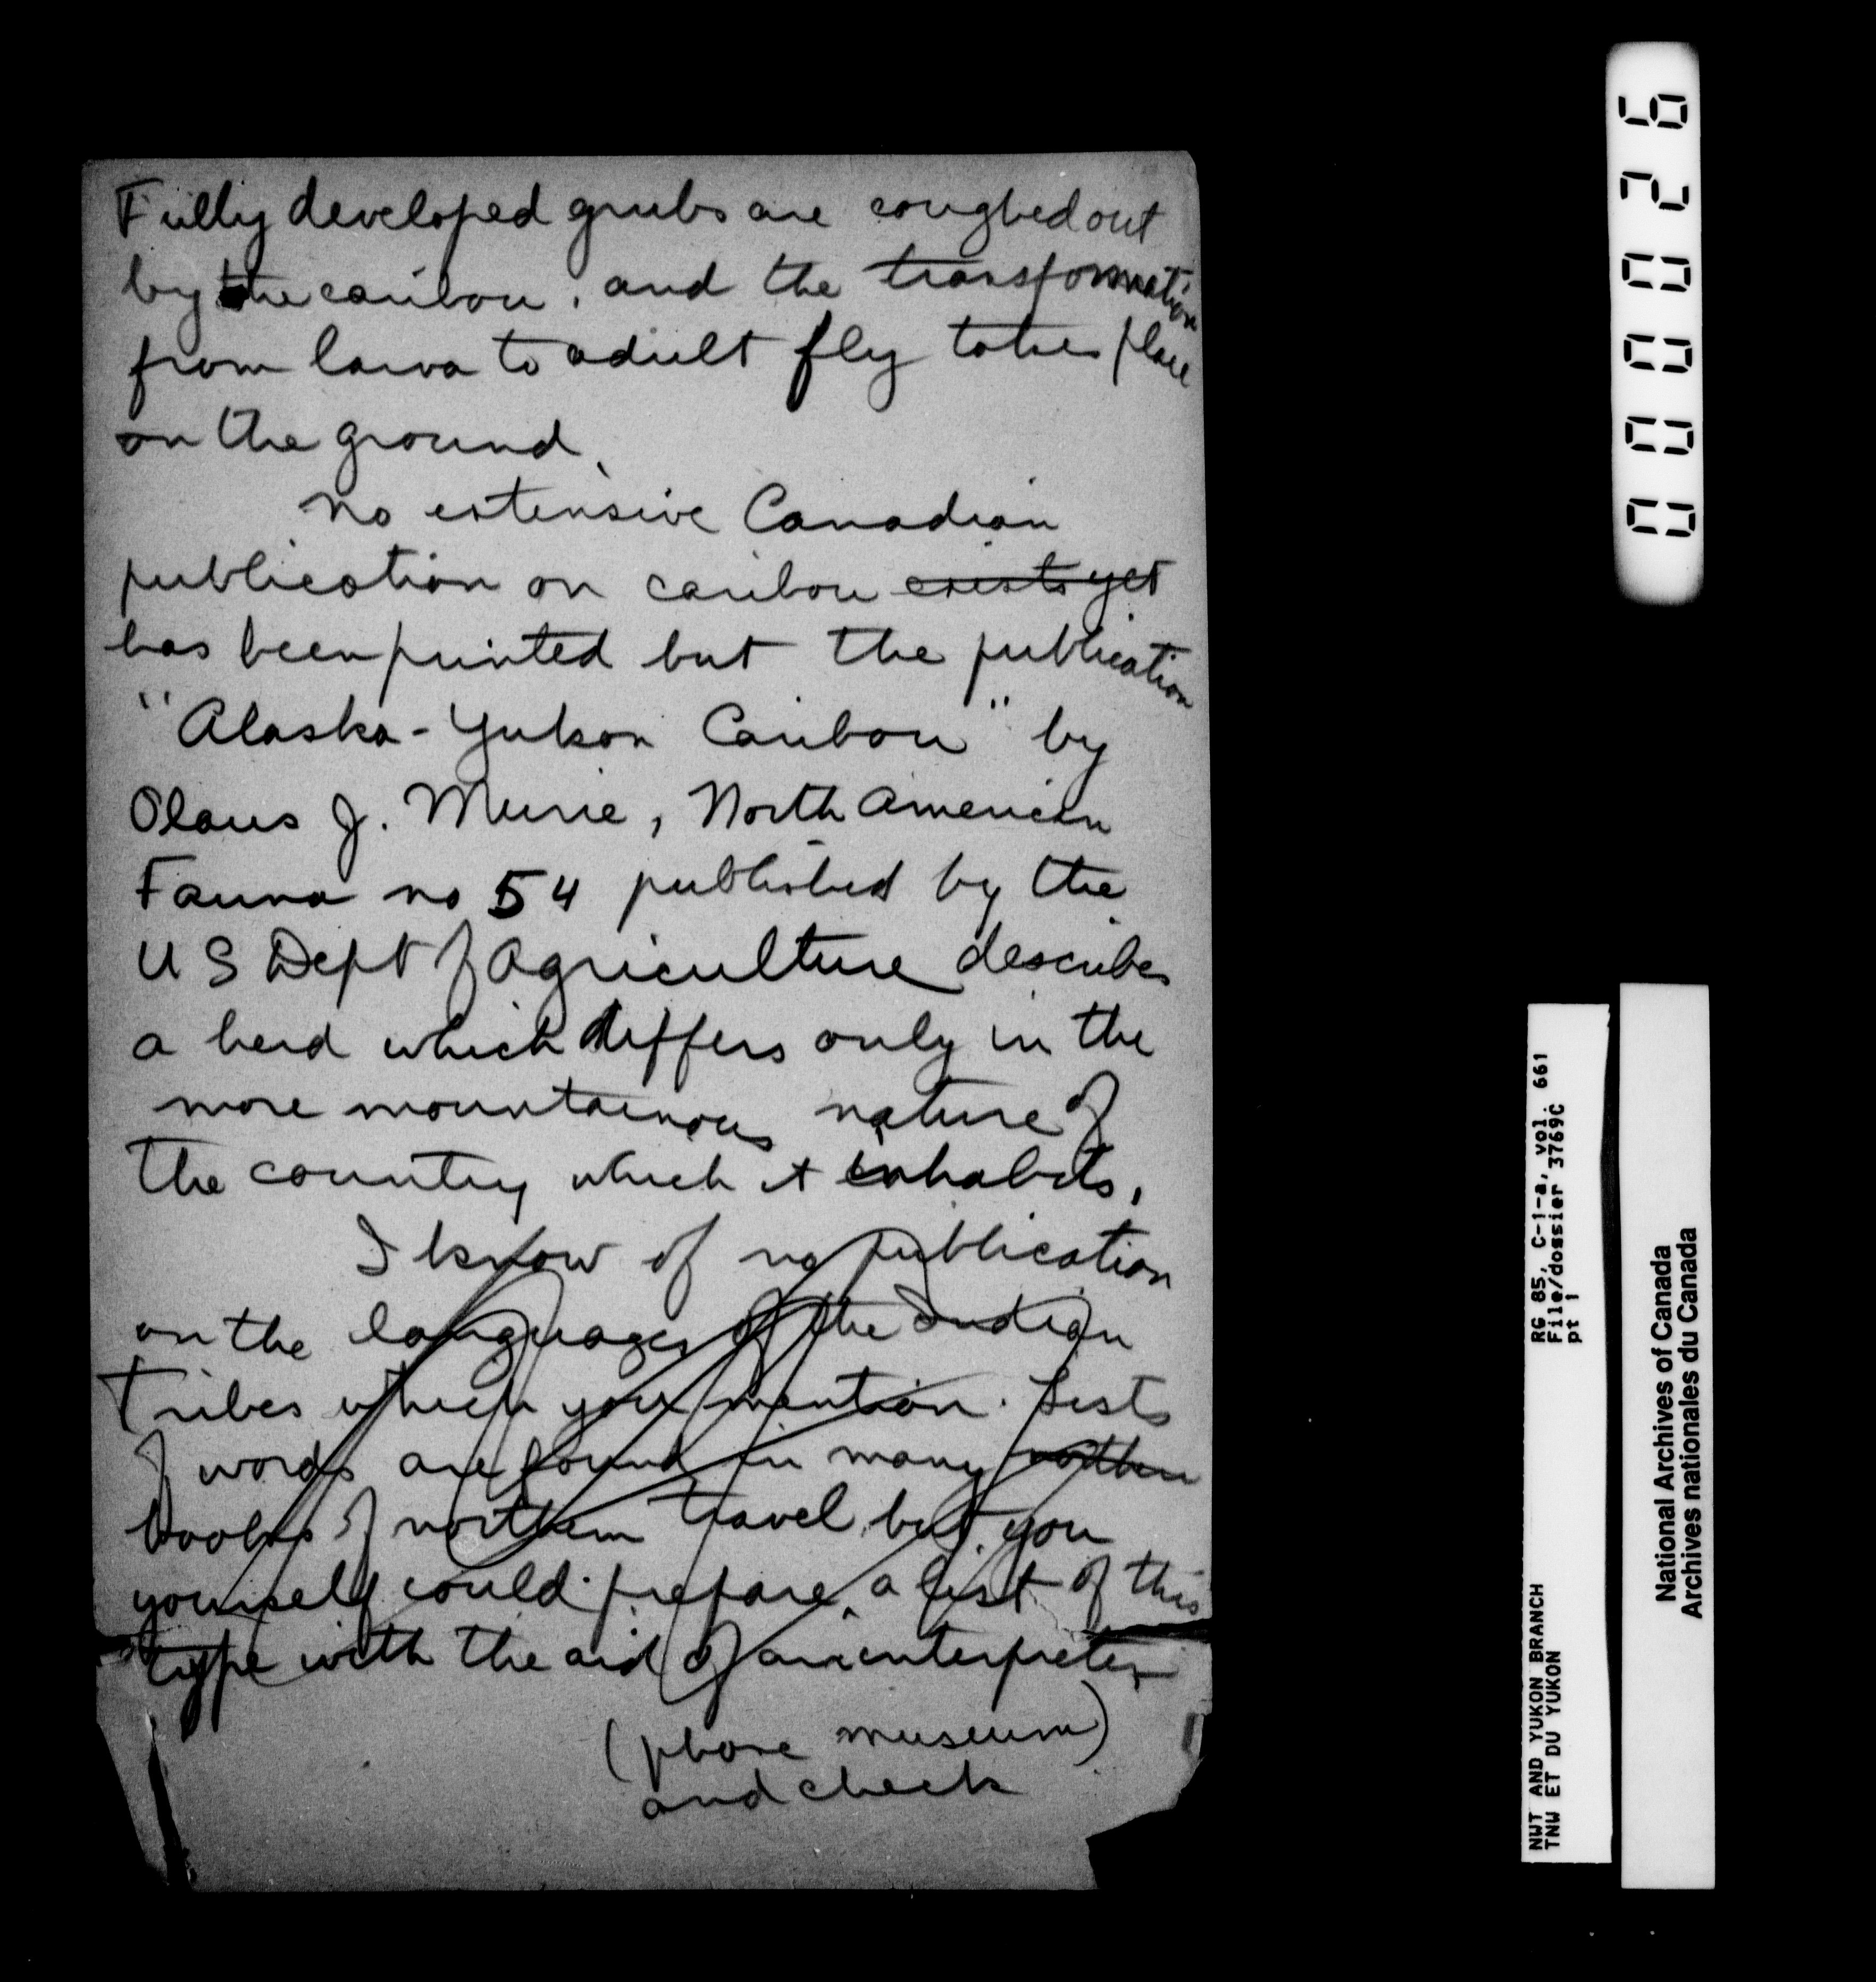 Fully developed grubs are coughed out
by the caribou, and the transformation
from larva to adult fly takes place
on the ground.
No extensive Canadian
publication on caribou exists yet
has been printed but the publication
"Alaska-Yukon Caribou" by
Olaus J. Murie, North American
Fauna no 54 published by the
U S Dept of Agriculture describes
a herd which differs only in the
more mountainous nature of
the country which it inhabits.
I know of no publication
on the languages of the Indian
tribes which you mention. Lists
of words are found in many northern
books of northern travel but you
yourself could prepare a list of this
type with the aid of an interpreter
(phone museum)
and check
000026
RG 85, C-1-a, vol. 661
File/dossier 3769C
pt 1
NWT AND YUKON BRANCH
TNW ET DU YUKON
National Archives of Canada
Archives nationales du Canada